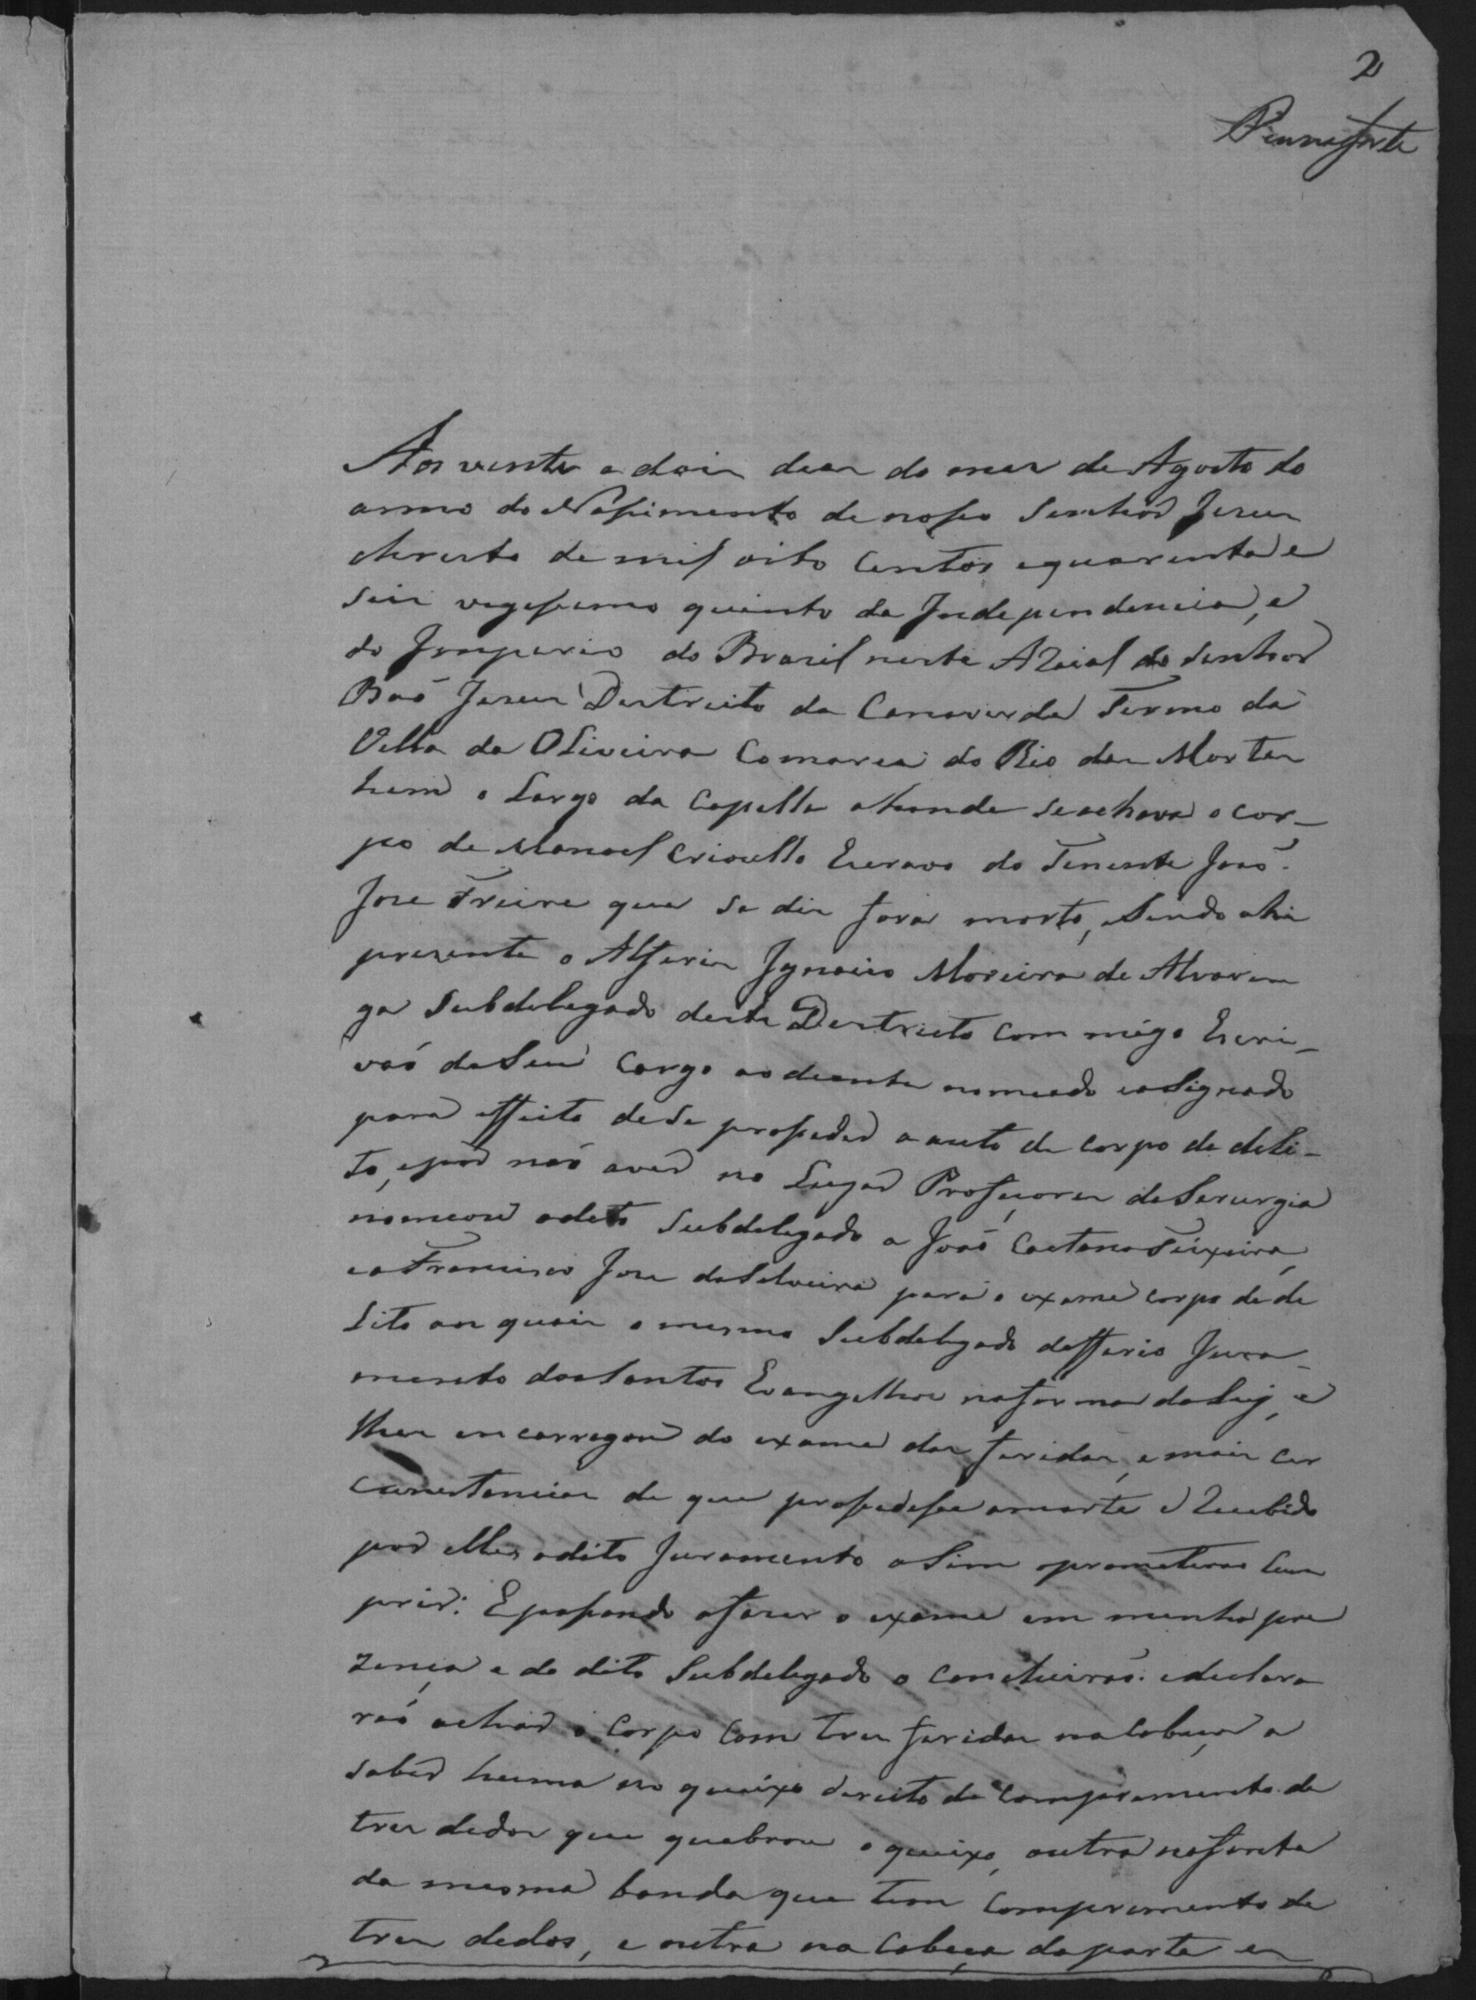 2
Pennaforte
Aos vinte e dois dias do mes de Agosto do
anno do Nassimento de nosso Senhor Jesus
Christo de mil oito Centos equarenta e
seis vigessimo quinto da Independencia, e
do Imperio do Brasil neste ARaial do Senhor
Bão Jesus Destricto da Canaverde Termo da
Villa da Oliveira Comarca do Rio das Mortes
hem o Largo da Capella ahonde seachava o cor-
po de Manoel Crioullo Escravo do Tenente João
Jose Freire que se dis fora morto, sendo ahi
prezente o Alferis Ignacio Moreira de Alvaren
ga Subdelegado deste Destricto com migo Escri-
vão deSeu Cargo aodeante nomeado eaSignado
para effeito dese prosseder a auto de corpo de deli-
to, epor não aver no Lugar Professores deSerurgia
nomeou odito Subdelegado a João Caetano Teixeira,
eaFrancisco Jose daSelveira para o exame corpo de de
Lito aos quais o mesmo Subdelegado defferio Jura-
mento dosSantos Evangelhos naforma daLey, e
lhes encarregou do exame das feridas, e mais cir
cunstancias de que prossedesse amorte e Recebido
por elles odito Juramento aSim oprometerão Cum
prir: Epassando afazer o exame em minha pre
zença e do dito Subdelegado o concluirão. edeclara
rão achar o Corpo Com tres feridas naCabeça a
saber huma no queixo dereito de Comperemento de
tres dedos que quebrou o queixo, outra nafonte
da mesma banda que tem Comperemento de
tres dedos, e outra na Cabeça daparte es